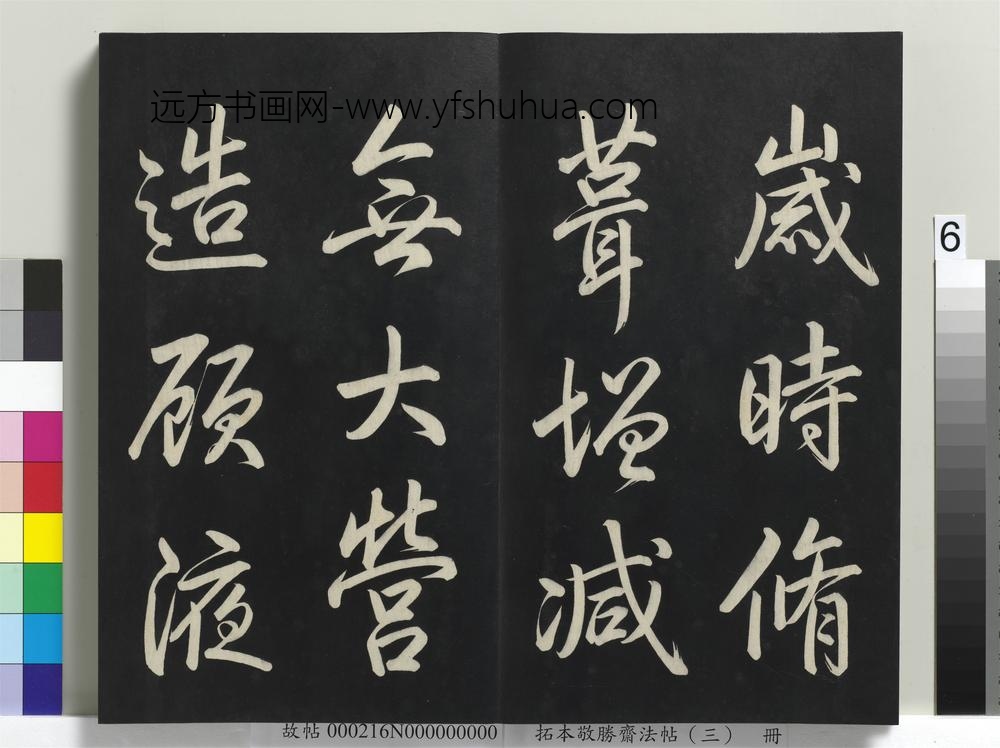 歲時脩
葺增減
無大營
造顧液
远方书画网-www.yfshuhua.com
6
故帖 000216N000000000 拓本敬勝齋法帖（三） 冊